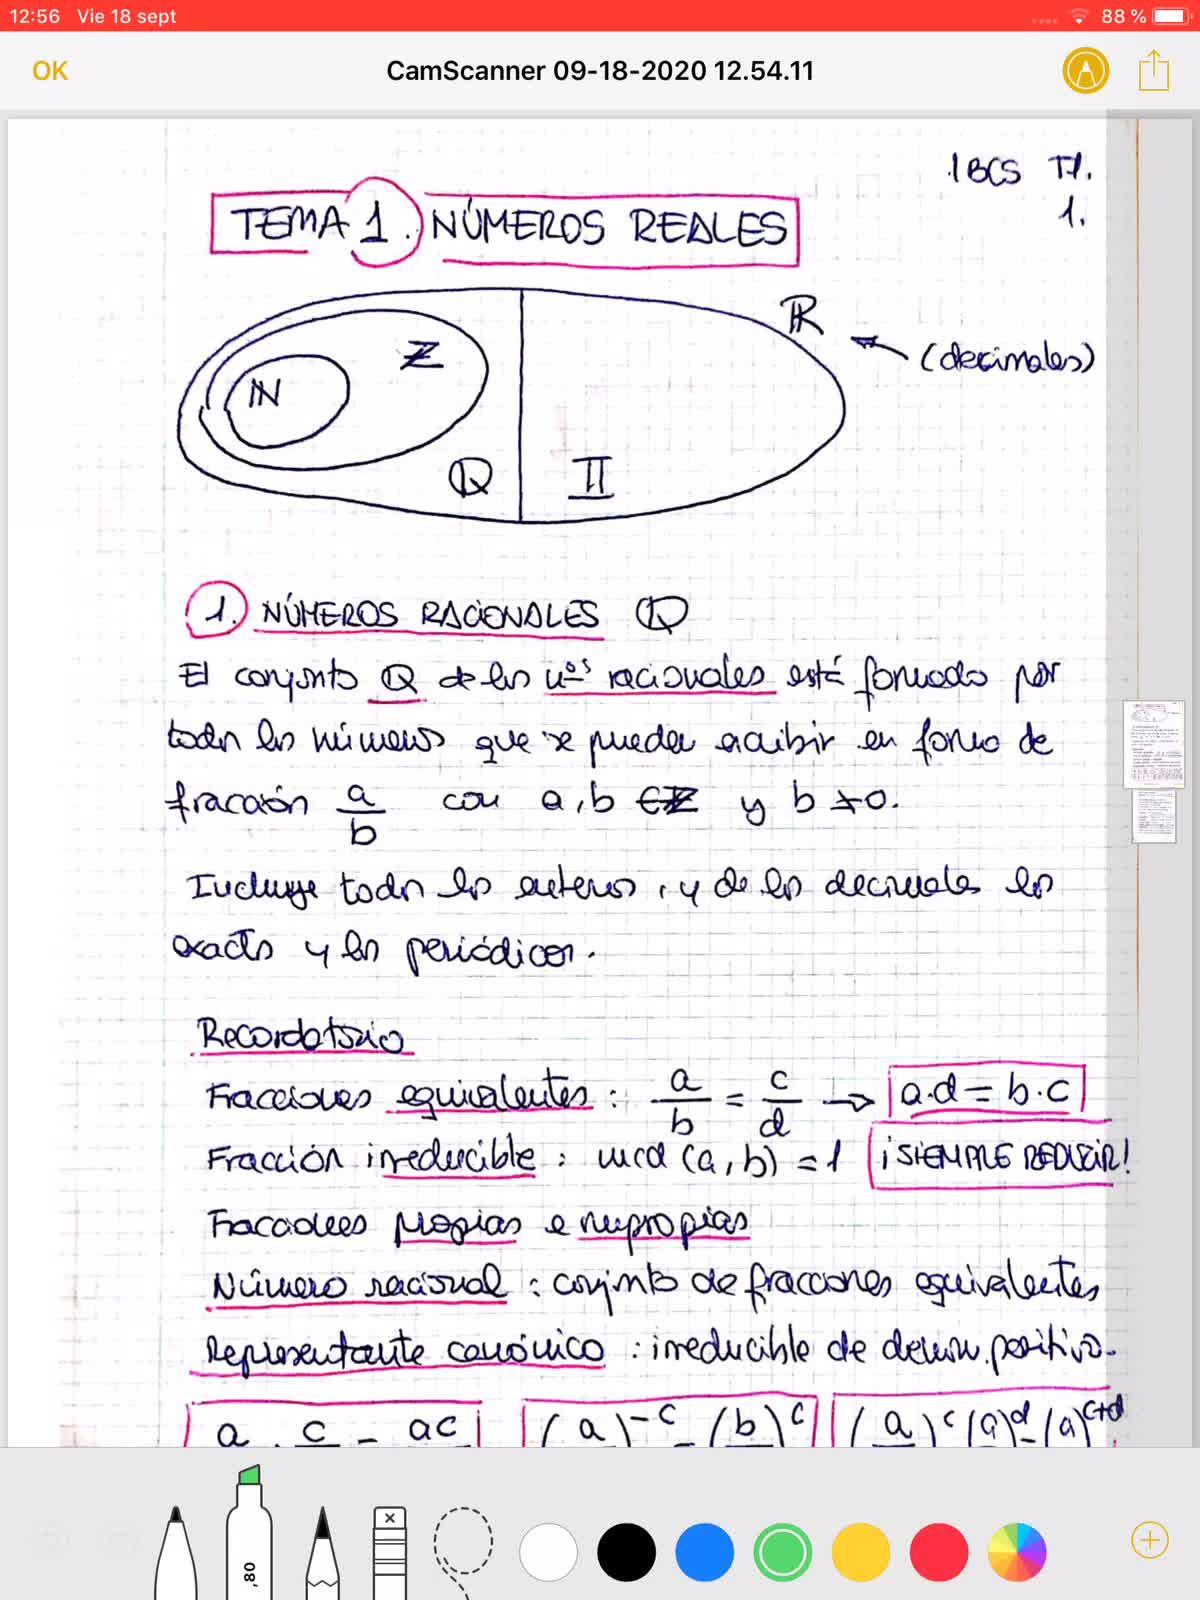 12:56 Vie 18 sept
88 %
OK
CamScanner 09-18-2020 12.54.11
1BCS T1.
1.
TEMA 1. NÚMEROS REALES
ℝ
(decimales)
ℕ
ℤ
ℚ
𝕀
1. NÚMEROS RACIONALES ℚ
El conjunto ℚ de los nos racionales está formado por
todos los números que se pueden escribir en forma de
fracción a/b con a, b ∈ ℤ y b ≠ 0.
Incluye todos los enteros, y de los decimales los
exactos y los periódicos.
Recordatorio
Fracciones equivalentes : a/b = c/d → a·d = b·c
Fracción irreducible : mcd (a, b) = 1 ¡SIEMPRE REDUCIR!
Fracciones propias e impropias
Número racional : conjunto de fracciones equivalentes
Representante canónico : irreducible de denom. positivo.
a · c = ac (a)^-c = (b)^c (a)^c (a)^d = (a)^c+d
80